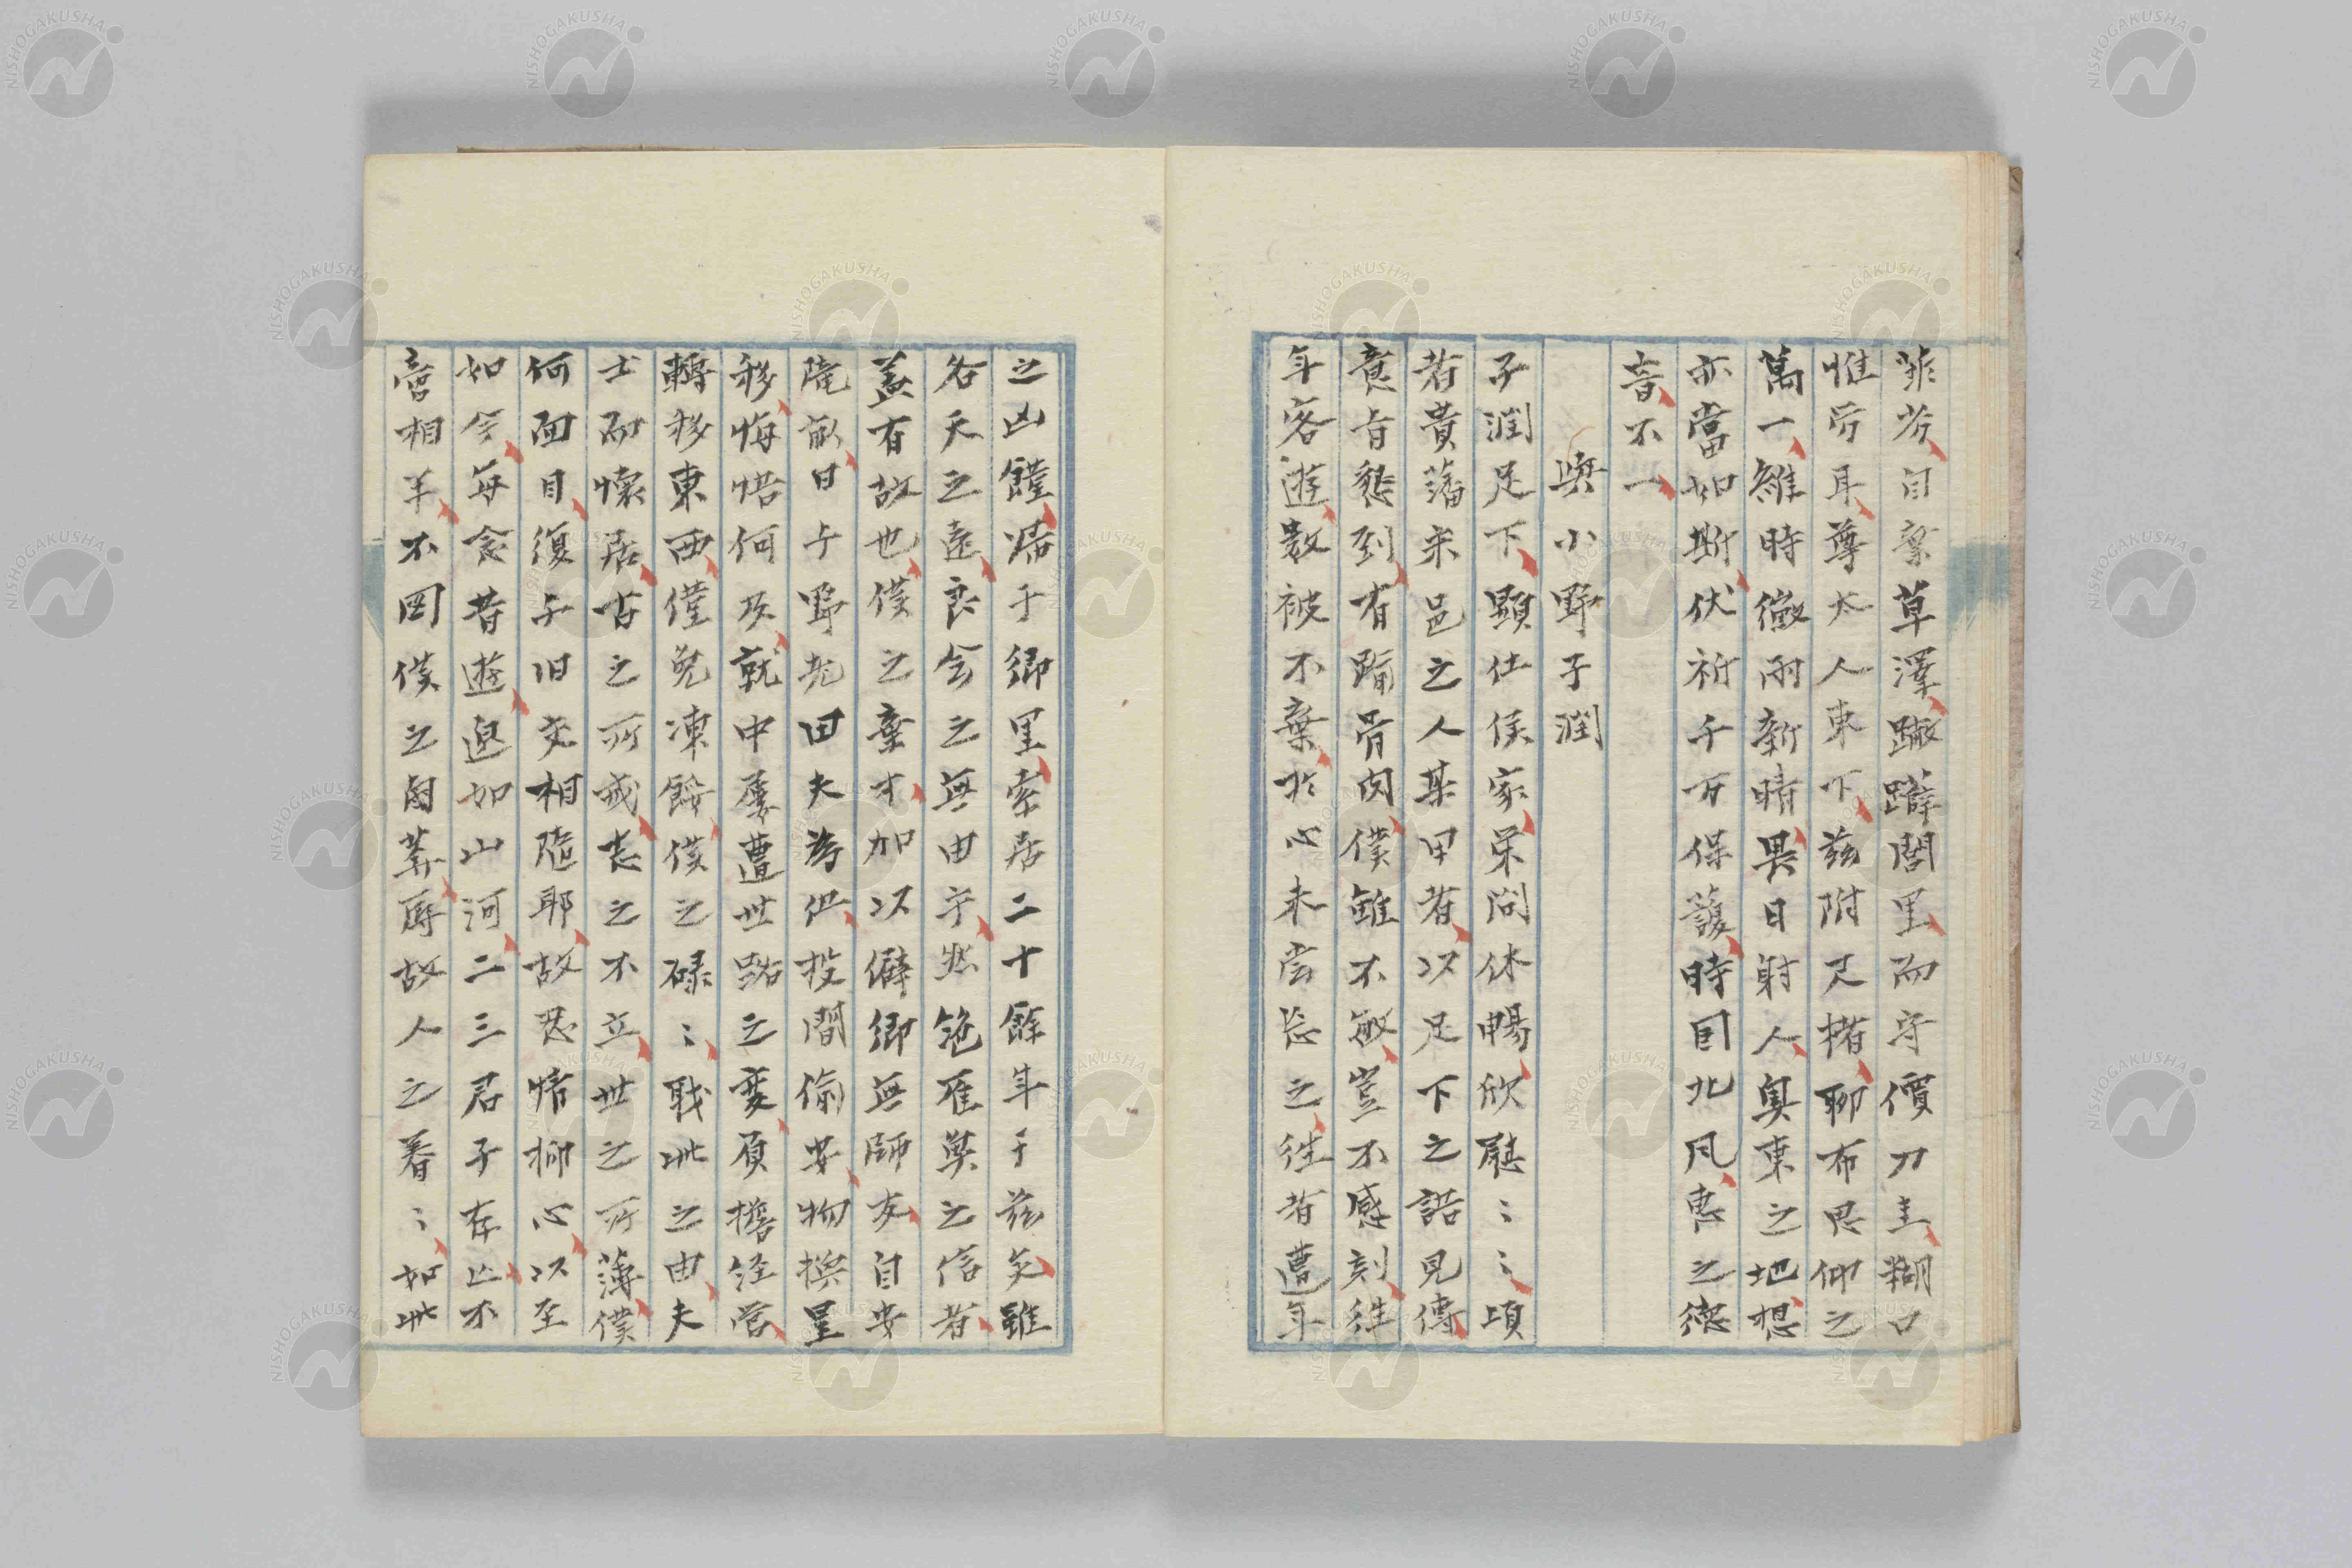 菲劣自棄草澤蹩躄閭里而守價刀圭糊口
惟所耳尊大人東下茲附尺楮聊布思仰之
萬一維時微雨新晴異日射人奧東之地想
亦當如斯伏祈千万保護時因北风惠之德
音不一
與小野子潤
子潤足下顕仕侯家栄問休暢欣慰〻〻頃
者貴藩宋邑之人某甲者以足下之諾見傳
意旨懇到有踰骨肉僕雖不敏豈不感刻往
年客遊數被不棄於心未嘗忘之往者遭年
之凶饉帰于郷里索居二十餘年于茲矣雖
各天之遠良会之無由乎然鴻雁莫之信者
蓋有故也僕之棄才加以僻郷無師友自安
隴畝日与野老田夫為伍投閒偷安物換星
移悔悟何及就中屢遭世路之変負擔経営
轉移東西僅免凍餒僕之碌〻職此之由夫
士而懐居古之所戒志之不立世之所薄僕
何面目復与旧交相随耶故忍情抑心以至
如今每念昔遊邈如山河二三君子存亡不
啻相半不図僕之鹵莽辱故人之眷〻如此
NISHOGAKUSHA